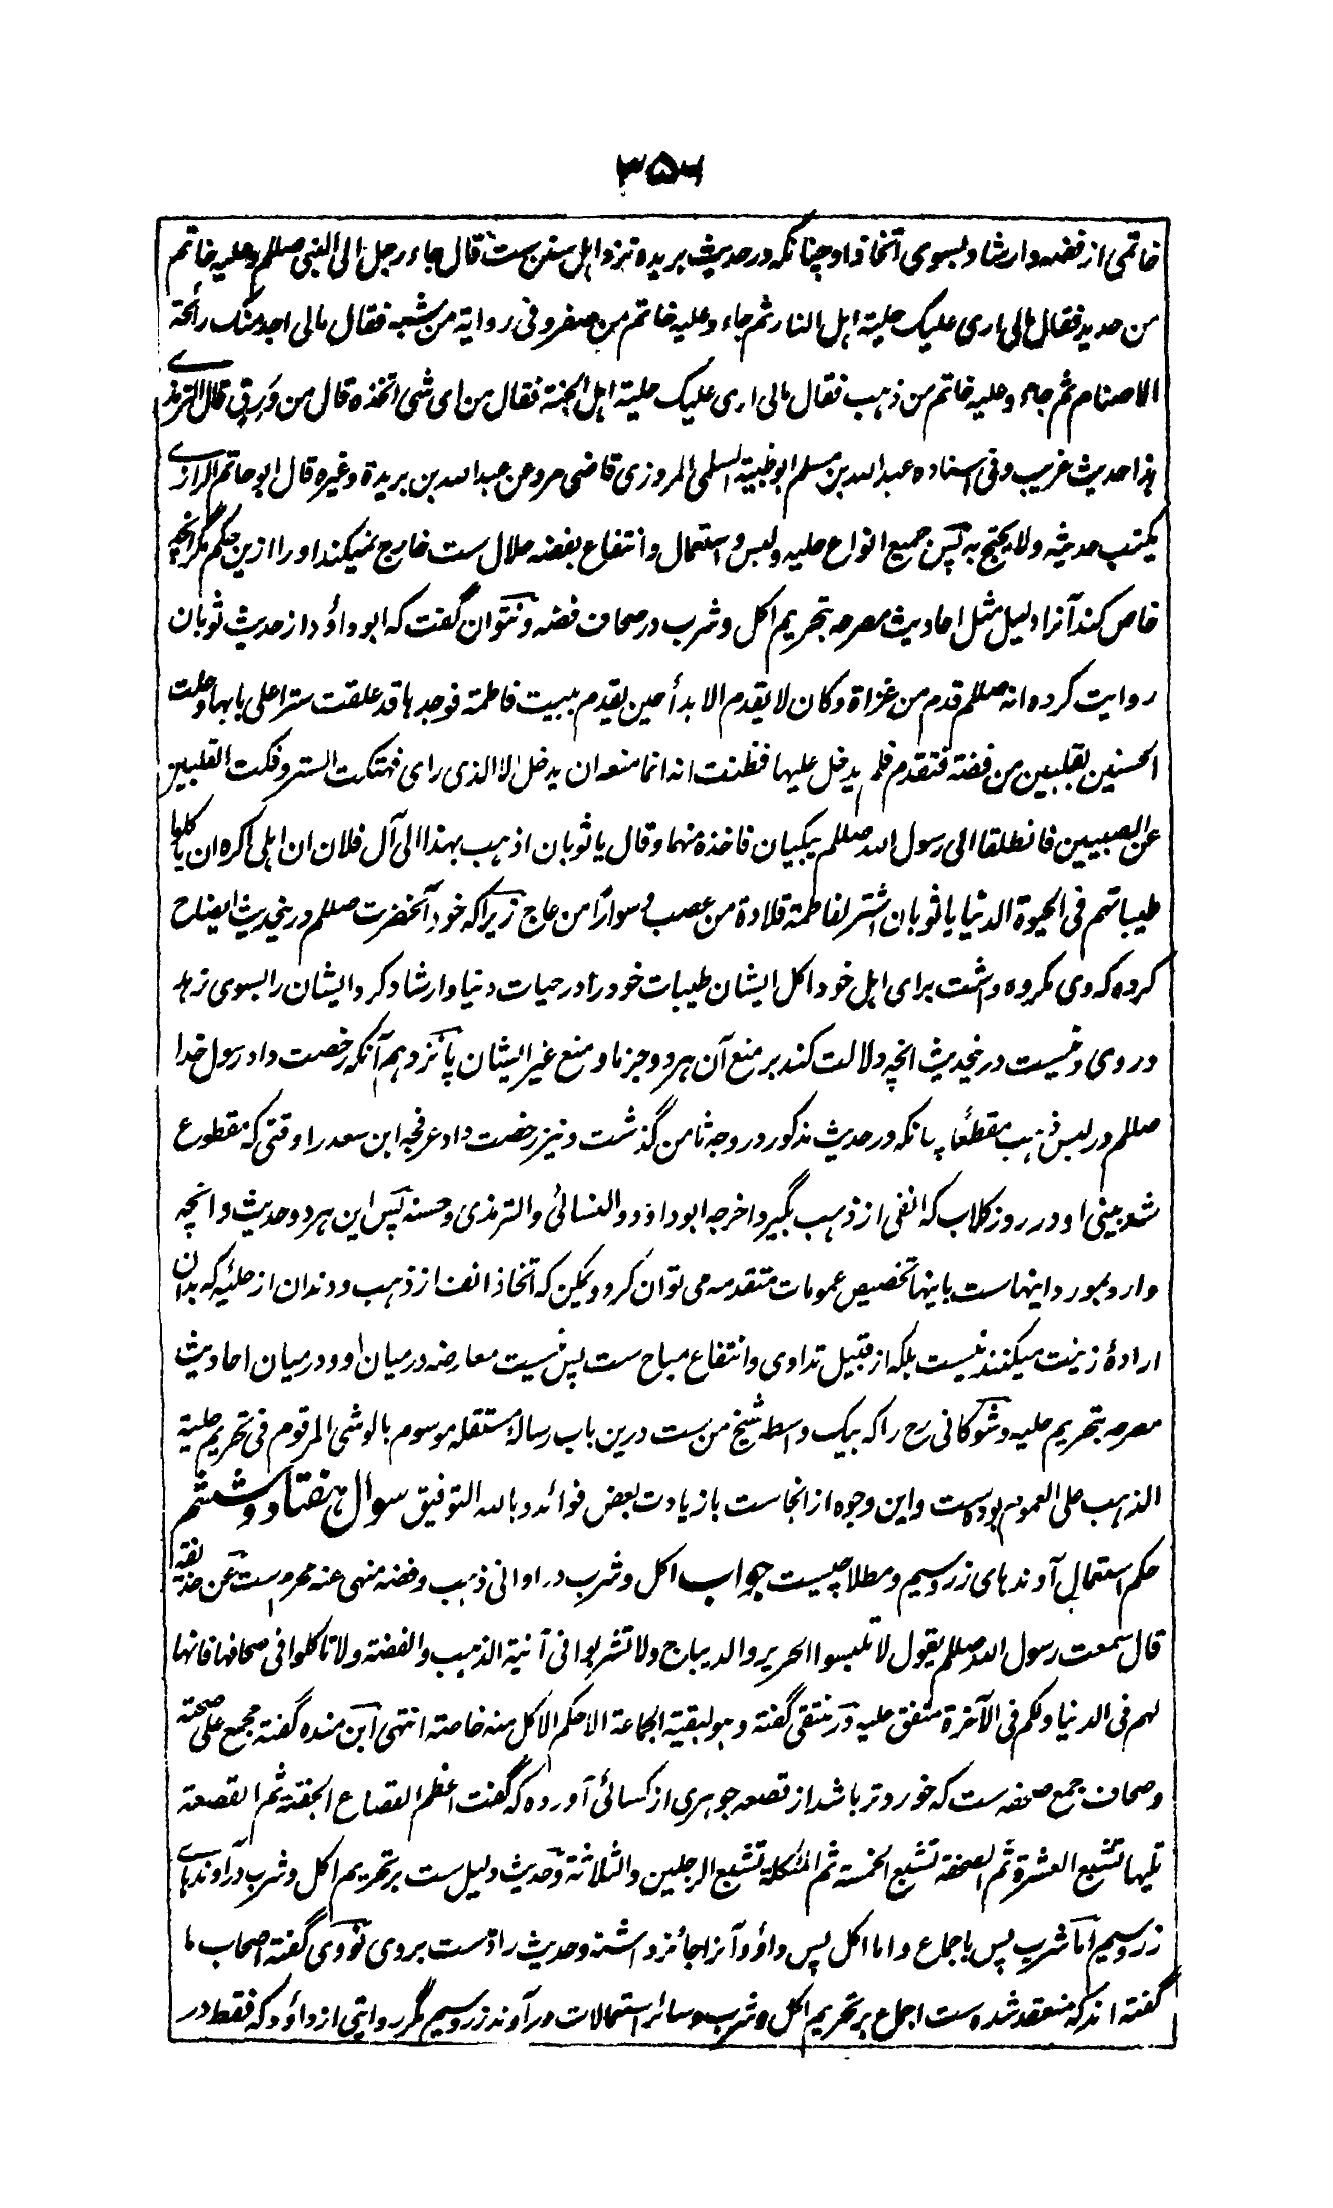 ۳۵۶
خاتمی از فضه و ارشاد بسوی اتخاذ او چنانکه در حدیث بریده نزد اہل سنن ست قال جاء رجل الی النبی صللم و علیه خاتم
من حدید فقال مالی اری علیک حلیة اہل النار ثم جاء و علیه خاتم من صفر و فی روایة من شبه فقال مالی اجد منک رائحة
الاصنام ثم جاء و علیه خاتم من ذہب فقال مالی اری علیک حلیة اہل الجنة فقال من ای شی اتخذه قال من ورق قال الترمذی
ہذا حدیث غریب و فی اسناده عبدالله بن مسلم ابو طیبة السلمی المروزی قاضی مرو عن عبدالله بن بریدة و غیره قال ابو حاتم الرازی
یکتب حدیثه و لا یحتج به پس جمیع انواع حلیه و لبس و استعمال و انتفاع بفضه حلال ست خارج نمیکند او را ازین حکم مگر انچه
خاص کند آنرا دلیل مثل احادیث مصرحه بتحریم اکل و شرب در صحاف فضه و نتوان گفت که ابو داؤد از حدیث ثوبان
روایت کرده انه صللم قدم من غزاة و کان لا یقدم الا بدأ حین یقدم ببیت فاطمة فوجدہا قد علقت سترا علی بابہا و حلت
الحسنین بقلبین من فضة فتقدم فلم یدخل علیہا فظنت انه انما منعه ان یدخل الا الذی رای فہتکت الستر و فکت القلبین
عن الصبیین فانطلقا الی رسول الله صللم یبکیان فاخذه منہما و قال یا ثوبان اذہب بہذا الی آل فلان ان اہلی اکره ان یاکلوا
طیباتہم فی الحیوة الدنیا یا ثوبان اشتر لفاطمة قلادة من عصب و سوارا من عاج زیراکه خود آنحضرت صللم درین حدیث ایضاح
کرده که وی مکروه داشت برای اہل خود اکل ایشان طیبات خود را در حیات دنیا و ارشاد کرد ایشان را بسوی زہد
در وی و نیست درین حدیث انچه دلالت کند بر منع آن ہر دو جز ما و منع غیر ایشان پانزدہم آنکه رخصت داد رسول خدا
صللم در لبس ذہب مقطعا چنانکه در حدیث مذکور در وجه ثامن گذشت و نیز رخصت داد عرفجه ابن سعد را وقتی که مقطوع
شد بینی او در روز کلاب که انفی از ذہب بگیرد اخرجه ابو داؤد و النسائی و الترمذی و حسنه پس این ہر دو حدیث و انچه
وارد بمورد اینہاست باینہا تخصیص عمومات متقدمه می توان کرد و یمکن که اتخاذ انف از ذہب و دندان از حلیه که بدان
ارادۀ زینت میکنند نیست بلکه از قبیل تداوی و انتفاع مباح ست پس نیست معارضه درمیان او و درمیان احادیث
مصرحه بتحریم حلیه و شوکانی رح را که بیک واسطه شیخ من ست درین باب رسالۀ مستقله موسوم بالوشی المرقوم فی تحریم حلیة
الذہب علی العموم بوده ست و این وجوه از انجاست با زیادت بعض فوائد و بالله التوفیق سوال ہفتاد و ششم
حکم استعمال آوندہای زر و سیم و مطلا چیست جواب اکل و شرب در اوانی ذہب و فضه منہی عنه محرم ست عن حذیفة
قال سمعت رسول الله صللم یقول لا تلبسوا الحریر و الدیباج و لا تشربوا فی آنیة الذہب و الفضة و لا تاکلوا فی صحافہا فانہا
لہم فی الدنیا و لکم فی الآخرة متفق علیه در منتقی گفته و ہو لبقیة الجماعة الا حکم الاکل منه خاصة انتہی ابن منده گفته مجمع علی صحته
و صحاف جمع صحفه ست که خورد تر باشد از قصعه جوہری از کسائی آورده که گفت اعظم القصاع الجفنة ثم القصعة
تلیہا تشبع العشرة ثم الصحفة تشبع الخمسة ثم المئکلة تشبع الرجلین و الثلاثة و حدیث دلیل ست بر تحریم اکل و شرب در آوندہای
زر و سیم اما شرب پس باجماع و اما اکل پس داؤد آنرا جائز داشته و حدیث راد ست بروی نووی گفته اصحاب ما
گفته اند که منعقد شده ست اجماع بر تحریم اکل و شرب و سائر استعمالات در آوند زر و سیم مگر روایتی از داؤد که فقط در